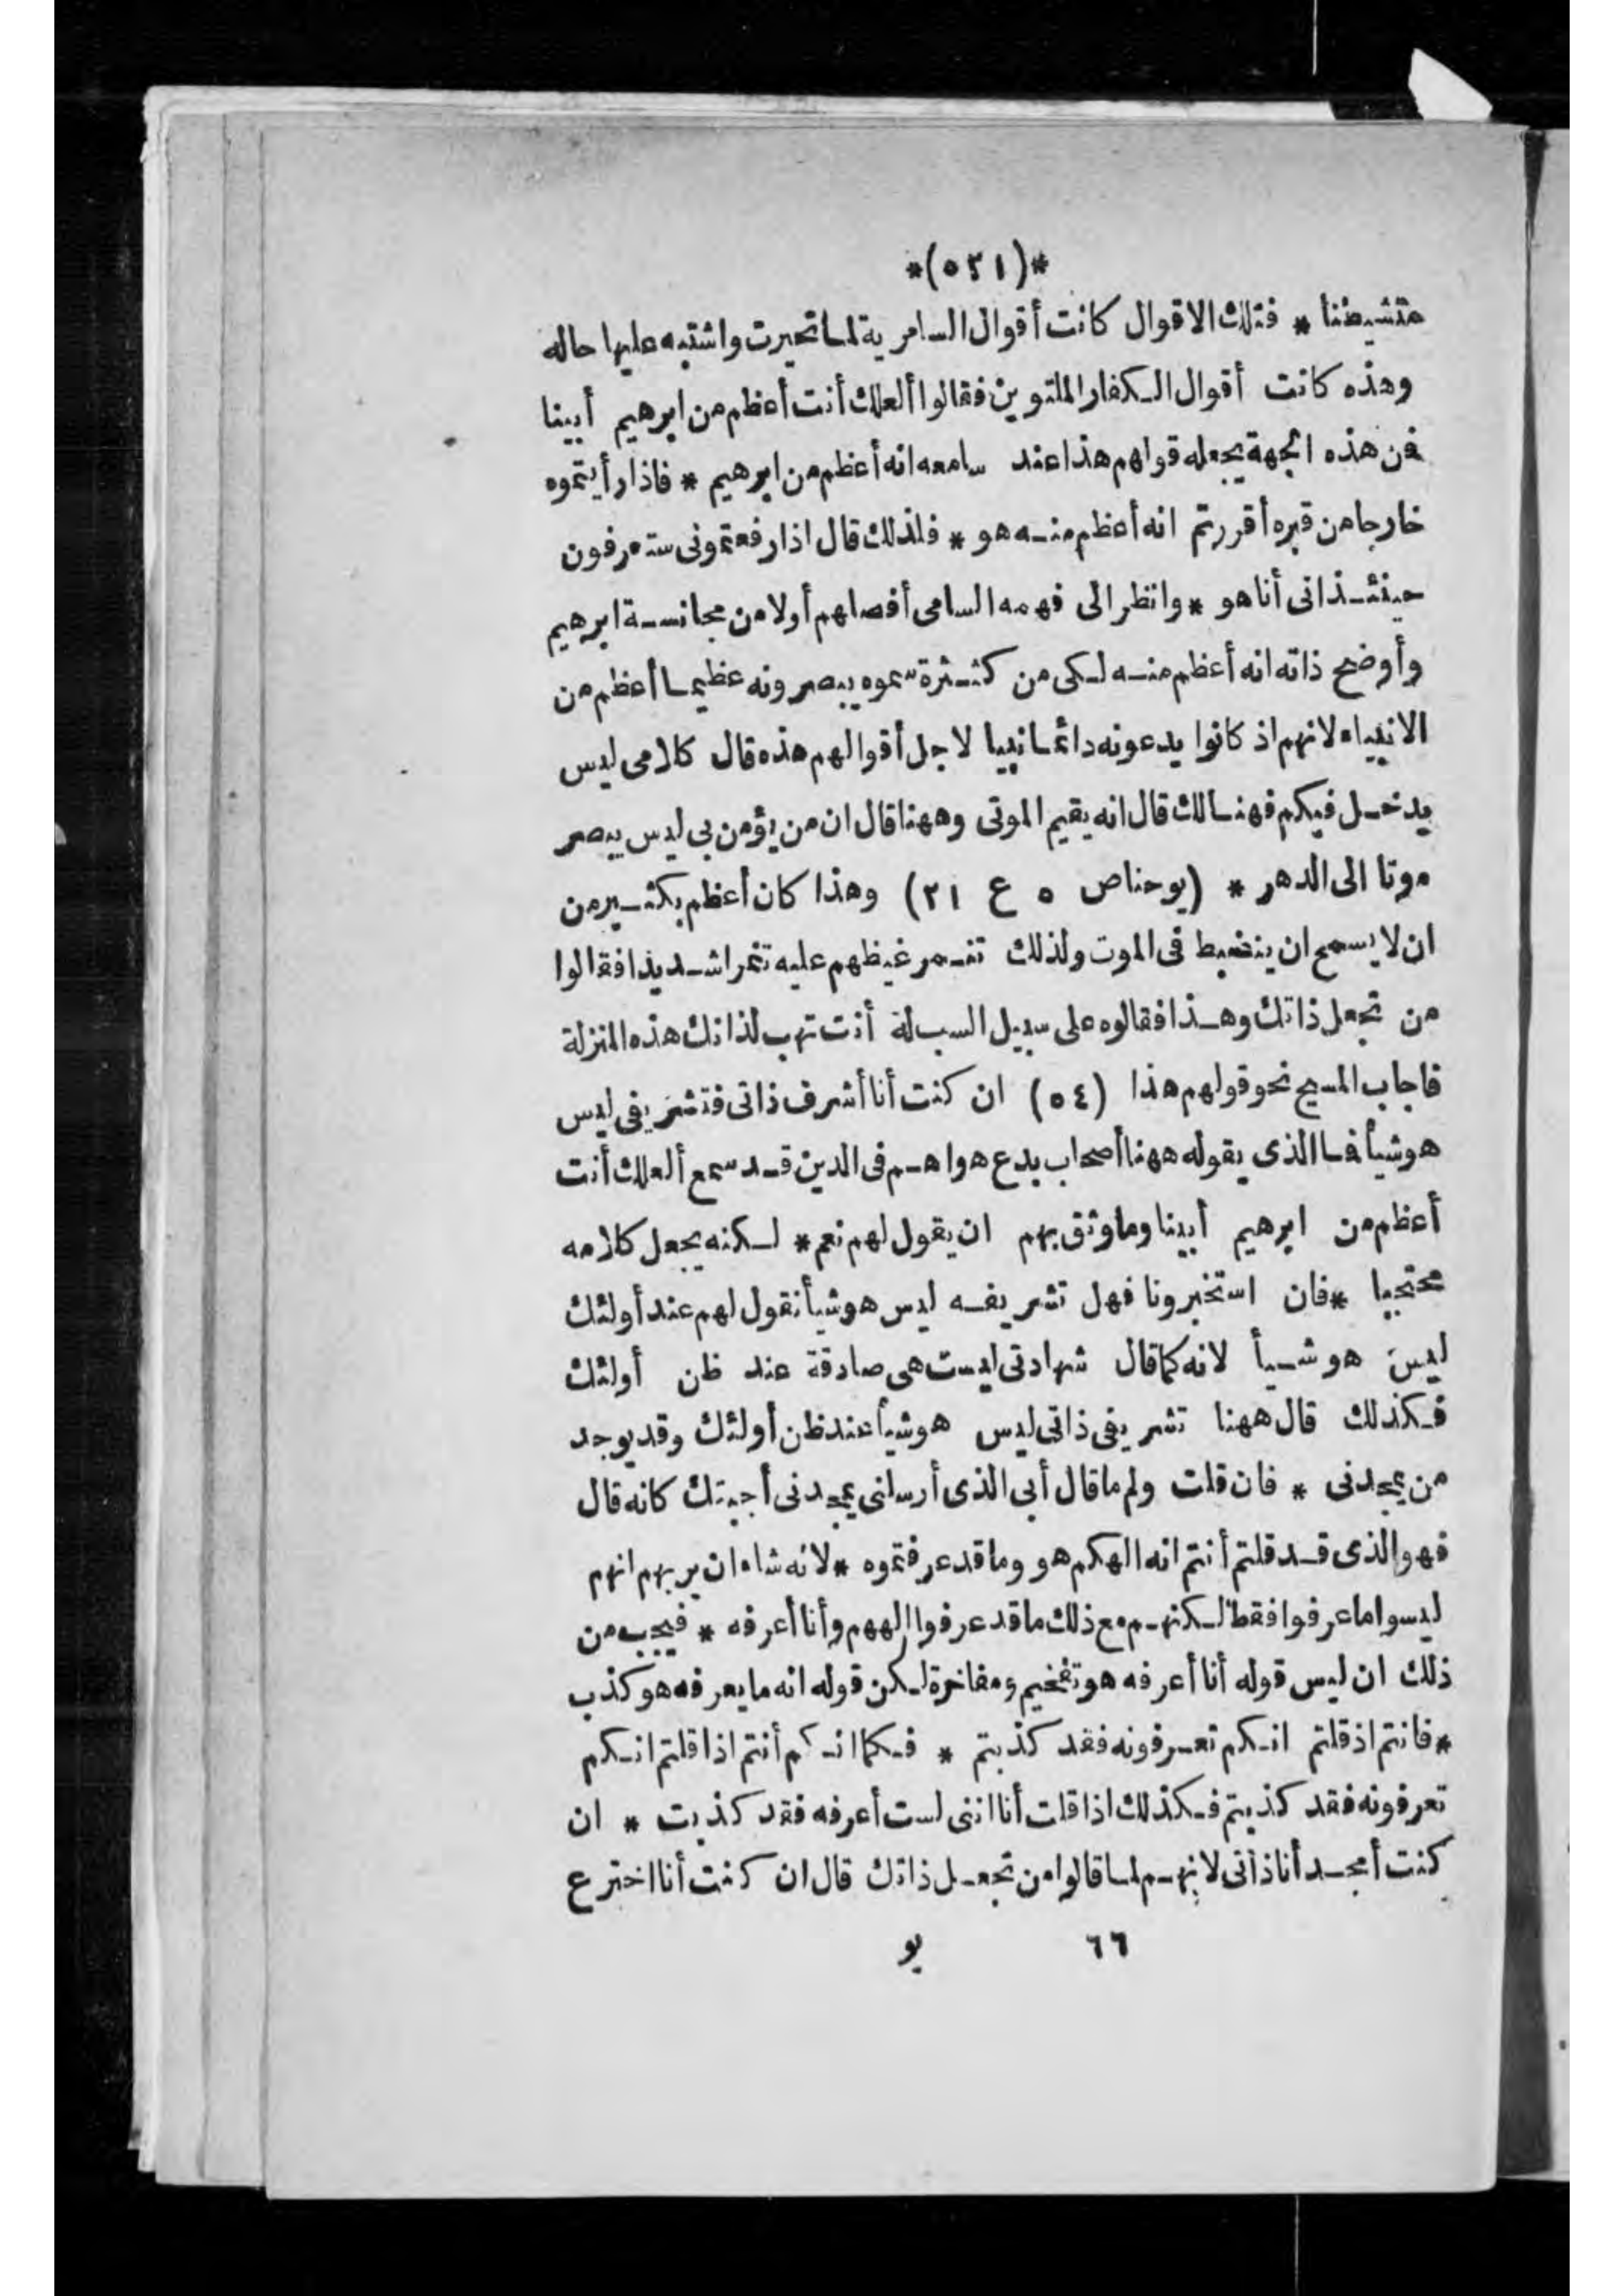 *(٥٢١)*
متشيطنا * فتلك الاقوال كانت أقوال السامرية لما تحيرت واشتبه عليها حاله
وهذه كانت أقوال الكفار الملتوين فقالوا ألعلك أنت أعظم من ابرهيم أبينا
فن هذه الجهة يجعله قولهم هذا عند سامعه انه أعظم من ابرهيم * فاذا رأيتموه
خارجا من قبره أقررتم انه أعظم منه هو * فلذلك قال اذا رفعتموني ستعرفون
حينئذ انى أنا هو * وانظر الى فهمه السامى أفصلهم أولا من مجانسة ابرهيم
وأوضح ذاته انه أعظم منه لكى من كثرة سموه يبصرونه عظيما أعظم من
الانبياء لانهم اذ كانوا يدعونه دائما نبيا لاجل أقوالهم هذه قال كلامى ليس
يدخل فيكم فهنالك قال انه يقيم الموتى وههنا قال ان من يؤمن بى ليس يبصر
موتا الى الدهر * (يوحنا ص ٥ ع ٢١) وهذا كان أعظم بكثير من
ان لا يسمح ان ينضبط فى الموت ولذلك تنمر غيظهم عليه تنمرا شديدا فقالوا
من تجعل ذاتك وهذا فقالوه على سبيل السب له أنت تهب لذاتك هذه المنزلة
فاجاب المسيح نحو قولهم هذا (٥٤) ان كنت أنا أشرف ذاتى فتشريفى ليس
هو شيأ فما الذى يقوله ههنا أصحاب بدع هواهم فى الدين قد سمع ألعلك أنت
أعظم من ابرهيم أبينا وما وثق بهم ان يقول لهم نعم * لكنه يجعل كلامه
محتجبا * فان استخبرونا فهل تشريفه ليس هو شيأ نقول لهم عند أولئك
ليس هو شيأ لانه كما قال شهادتى ليست هى صادقة عند ظن أولئك
فكذلك قال ههنا تشريفى ذاتى ليس هو شيأ عند ظن أولئك وقد يوجد
من يمجدنى * فان قلت ولم ما قال أبى الذى أرسلنى يمجدنى أجبتك كانه قال
فهو الذى قد قلتم أنتم انه الهكم هو وما قد عرفتموه * لانه شاء ان يريهم انهم
ليسوا ما عرفوا فقط لكنهم مع ذلك ما قد عرفوا الههم وأنا أعرفه * فيجب من
ذلك ان ليس قوله أنا أعرفه هو تفخيم ومفاخرة لكن قوله انه ما يعرفه هو كذب
* فانتم اذ قلتم انكم تعرفونه فقد كذبتم * فكما انكم أنتم اذا قلتم انكم
تعرفونه فقد كذبتم فكذلك اذا قلت أنا اننى لست أعرفه فقد كذبت * ان
كنت أمجد أنا ذاتى لانهم لما قالوا من تجعل ذاتك قال ان كنت أنا اخترع
٦٦ يو